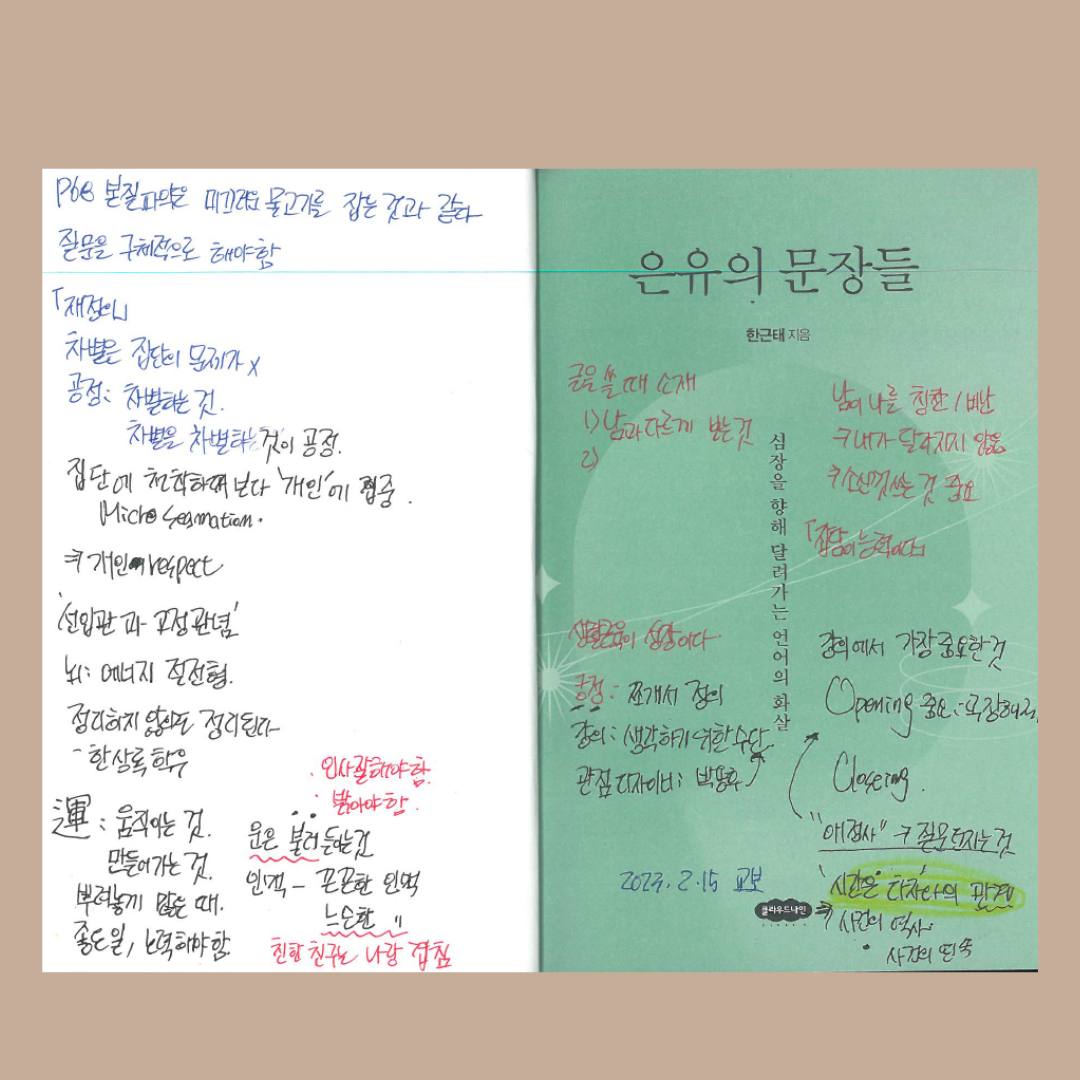 P68 본질파악은 미끄러운 물고기를 잡는 것과 같다
질문을 구체적으로 해야함
「재정의」
차별은 집단의 문제가 x
공정: 차별하는 것.
차별을 차별하는 것이 공정.
집단에 천착하며 보다 '개인'에 집중.
Micro
개인 respect
'선입관과 고정관념'
뇌: 에너지 절전형.
정리하지 않아도 정리된다
- 한상록 학우
運 : 움직이는 것.
만들어가는 것.
부러놓게 많을 때.
좋은일, 노력해야함.
· 인사잘해야함.
· 밝아야함.
운은 불러 듣는것
인맥 - 끈끈한 인맥
느슨한 〃
친한 친구는 나랑 겹침
은유의 문장들
한근태 지음
심장을 향해 달려가는 언어의 화살
글을 쓸 때 소재
1) 남과 다르게 보는 것
2)
남이 나를 칭찬 / 비난
내가 달라지지 않음
소신껏 쓰는 것 중요
「집담이 능력이다」
생활교육이 성장이다.
긍정: 쪼개서 정의
강의: 생각하기 위한 수단
관점 디자이너: 박용후
강의에서 가장 중요한 것
Opening 중요:
Closeing.
"애정사" → 질문던지는 것
'시간은 타자나의 관계'
사건의 역사.
• 사건의 연속
2023. 2. 15 교보
클라우드나인